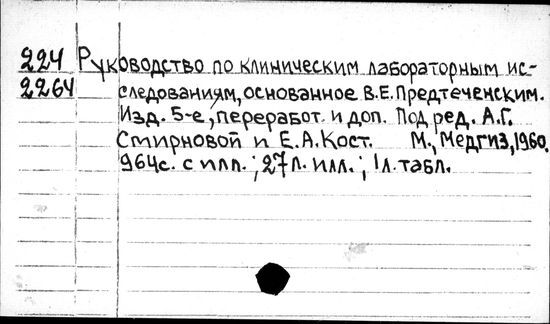 224 Руководство по клиническим лабораторным ис-
2264 следованиям, основанное В.Е.Предтеченским.
Изд. 5-е, переработ. и доп. Под ред. А.Г.
Смирновой и Е.А.Кост. М., Медгиз, 1960.
964с. с илл.; 27л. илл.; 1л. табл.